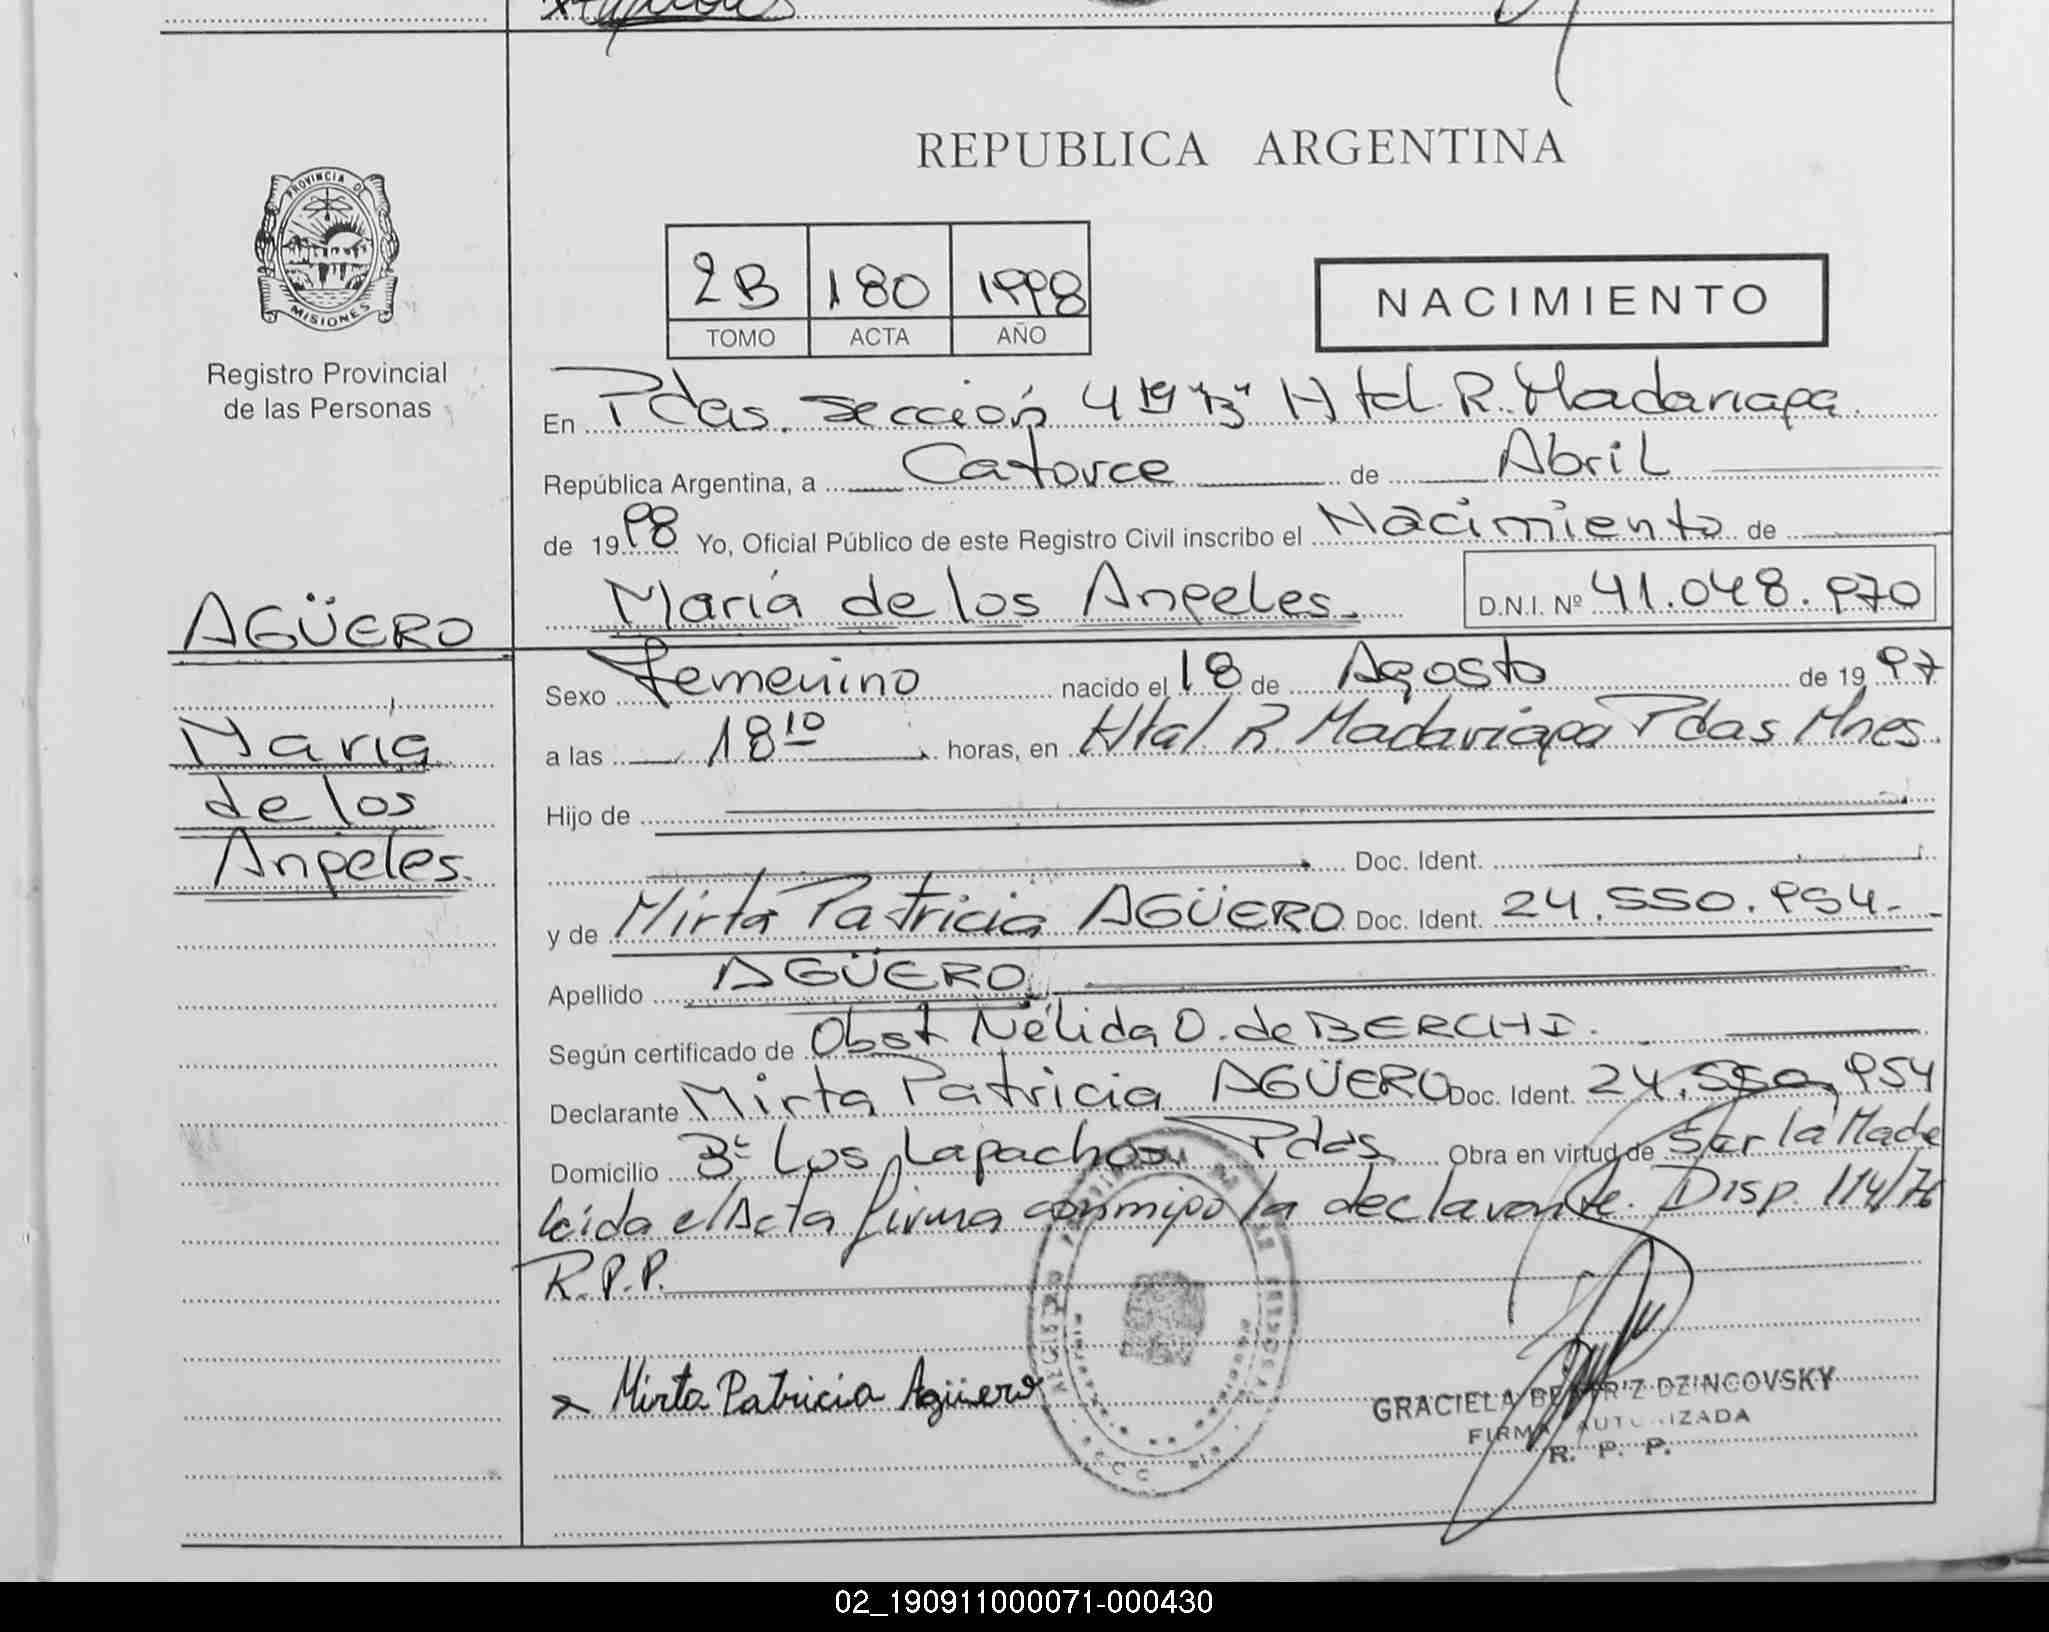 REPUBLICA ARGENTINA
PROVINCIA DE
MISIONES
Registro Provincial
de las Personas
2B 180 1998
TOMO ACTA AÑO
NACIMIENTO
En Pdas. sección 4 19 "B" Htal. R. Madariaga
República Argentina, a Catorce de Abril
de 1998 Yo, Oficial Público de este Registro Civil inscribo el Nacimiento de
María de los Angeles. D.N.I. Nº 41.048.970
AGÜERO
María
de los
Angeles.
Sexo Femenino nacido el 18 de Agosto de 1997
a las 18 10 horas, en Htal R. Madariaga Pdas Mnes.
Hijo de
Doc. Ident.
y de Mirta Patricia AGÜERO Doc. Ident. 24.550.954.-
Apellido AGÜERO
Según certificado de Obst Nélida O. de BERCHI.
Declarante Mirta Patricia AGÜERO Doc. Ident. 24.550.954
Domicilio Bº Los Lapachos Pdas Obra en virtud de Ser la Madre
leida el Acta firma conmigo la declarante. Disp. 114/76
R.P.P.
Mirta Patricia Agüero
GRACIELA BEATRIZ DZINCOVSKY
FIRMA AUTORIZADA
R. P. P.
02_190911000071-000430